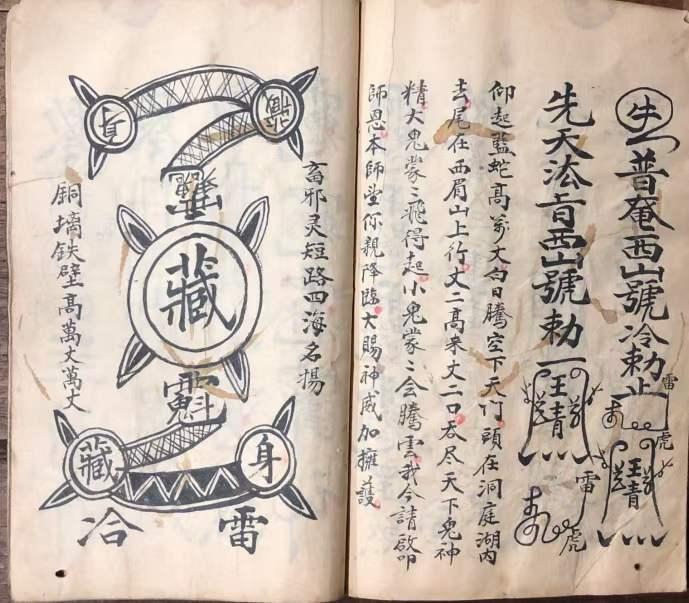 牛
普奄西山號冷勅止
雷
虎
王青
先天法旨西山號勅
王青
雷
虎
仰起藍蛇高萬丈白日騰空下天门頭在洞庭湖内
去尾在西眉山上行丈二高来丈二口吞尽天下鬼神
精大鬼蒙〻飛得起小鬼蒙〻会騰雲我今請啟叩
師恩本師堂你親降臨大賜神威加擁護
畜邪灵短路四海名揚
貞
藏
藏
身
雷
冶
銅墙铁壁高萬丈萬丈